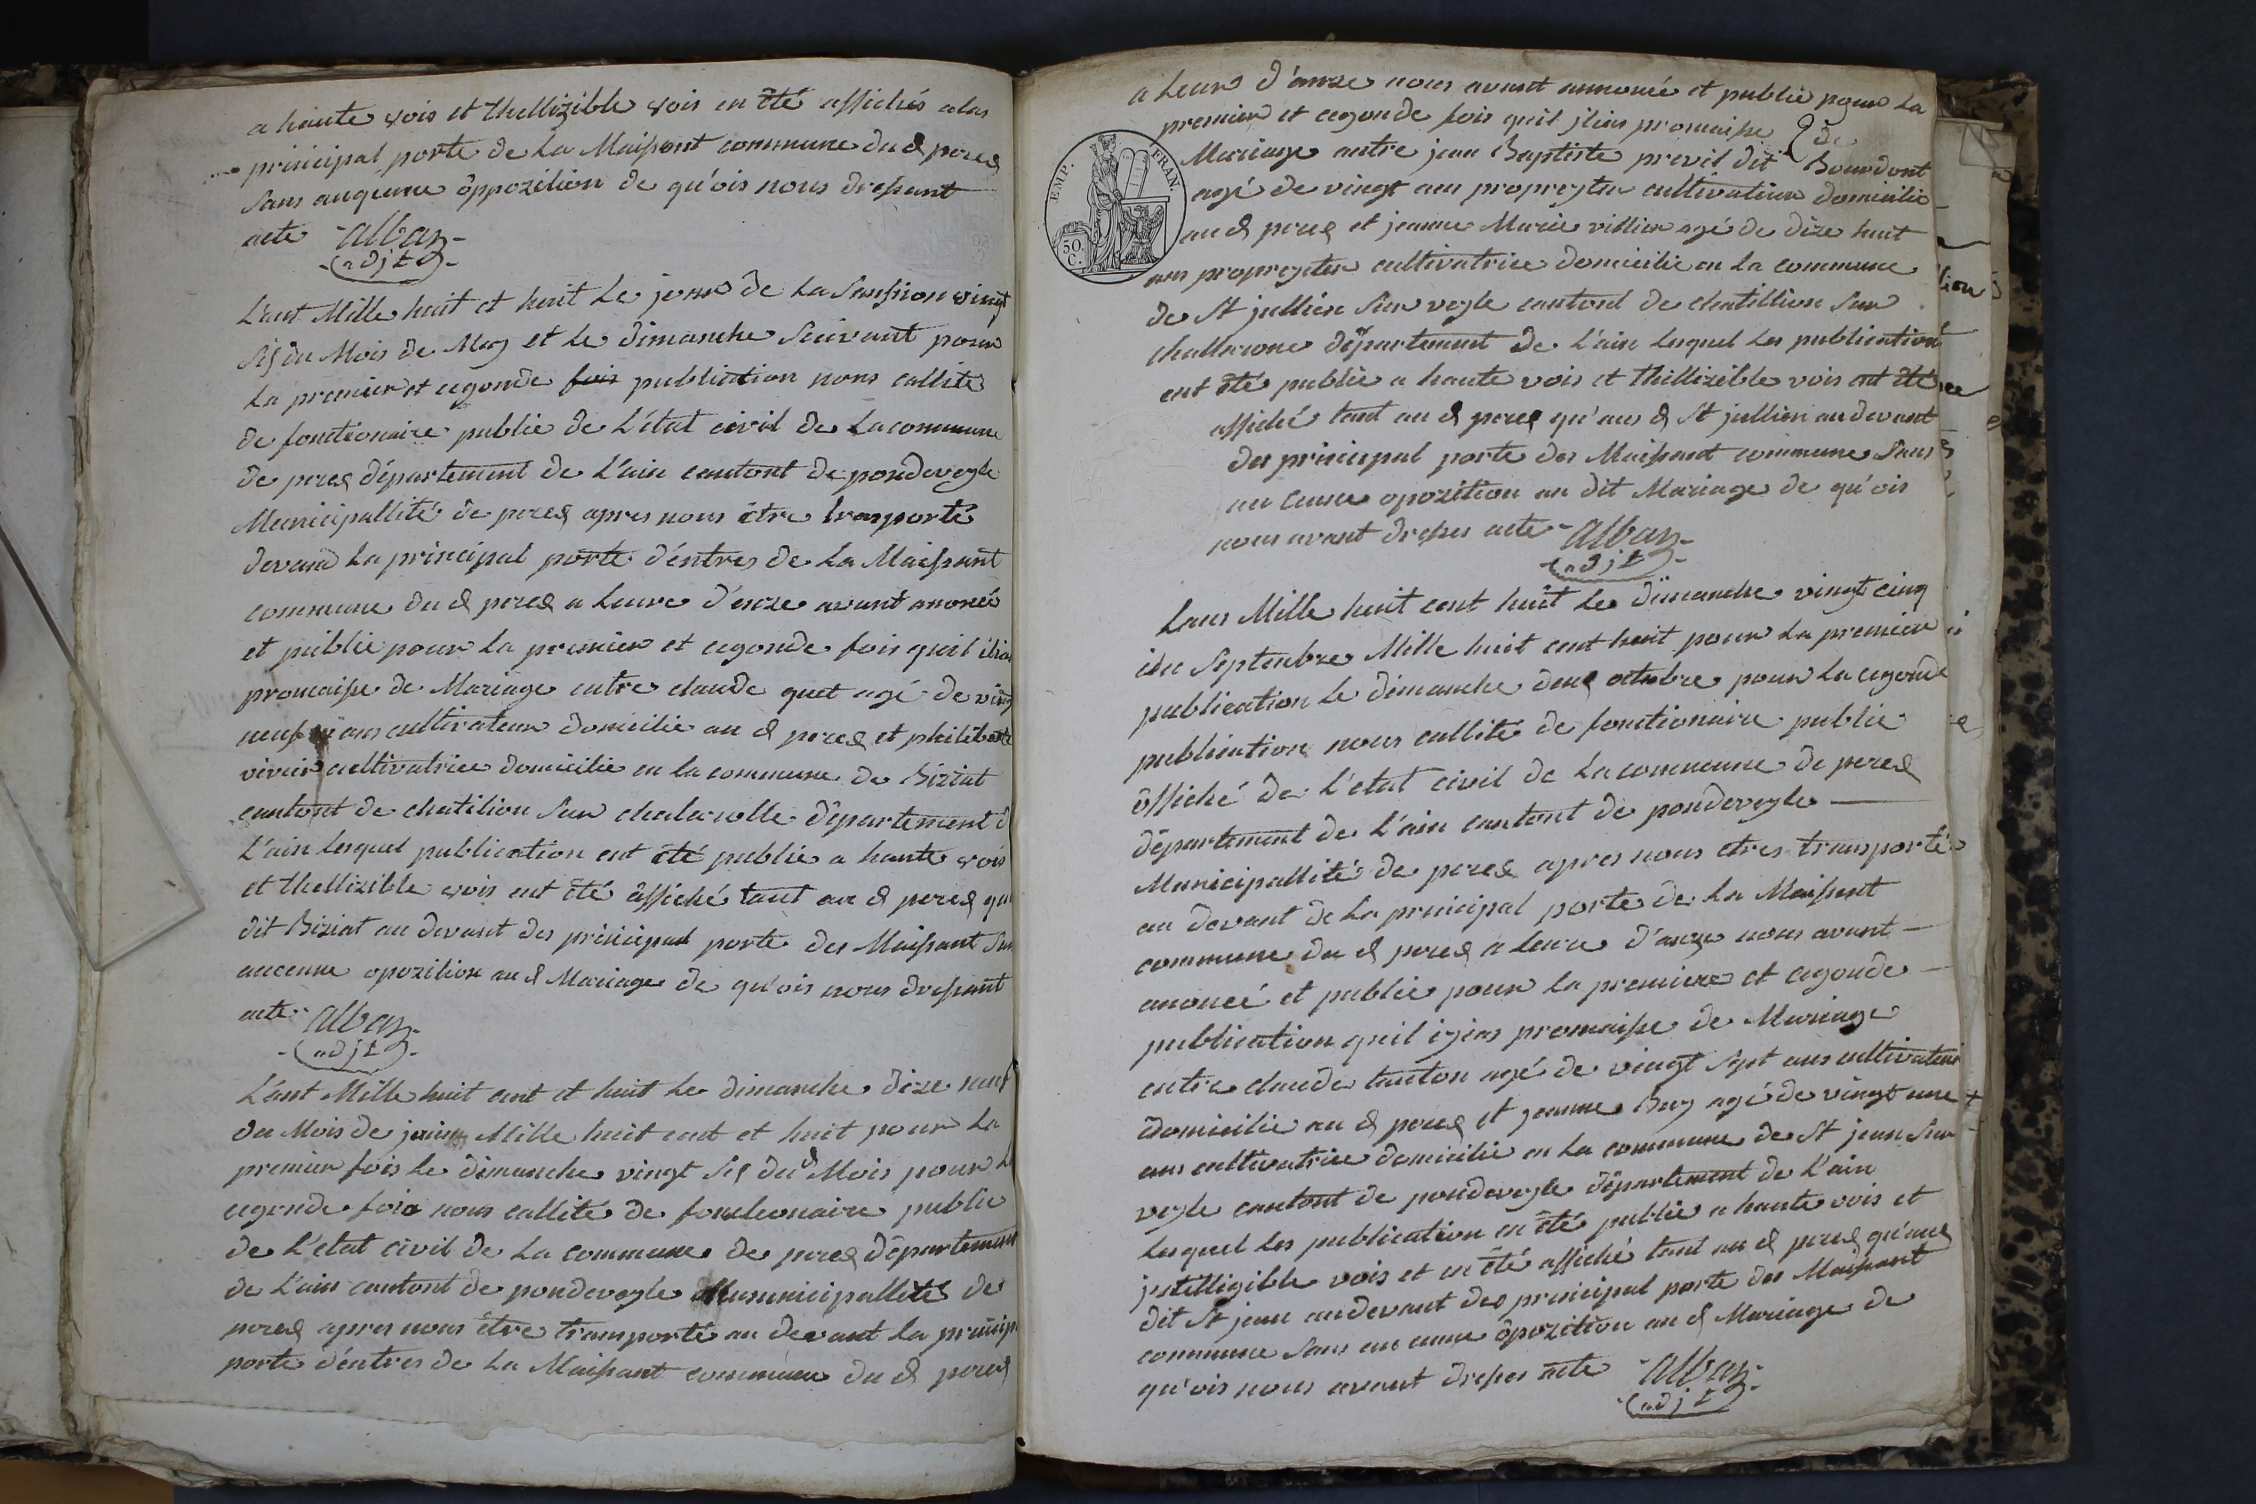 a haute vois et thellizible vois en été affichés alas
principal porte de La Maissont commune du d perex
sans auqcune öppozition de qu'ois nous dressant
acte alban
adjt
L'ant Mille huit et huit Le jour de La Sansion vingt
Six du Mois de May et le dimanche Suivant pour
La premier et cegonde fois publication nous callité
de fonctionaire public de L'état civil de La commune
de perex département de L'ain cantont de pondeveyle
Municipallité de perex apres nous être trasporté
devand La principal porte d'éntres de La Maissant
commune du d perex a Leure d'onze avant anoncé
et publié pour La premier et cegonde fois quil i lias
promaisse de Mariage entre claude quet agé de vingt
neuf ans cultivateur domicilié au d perex et philiberte
vivier cultivatrice domicilié en la commune de Biziat
cantont de chatilion Sur chalarolle département d
L'ain Lesquel publication ont été publié a haute vois
et thellizible vois ont été âffiché tant au d perex qu
dit Biziat au devant des principal porte des Maissant San
aucenne opozition au d Mariage de qu'ois nous dressant
acte alban
adjt
L'ant Mille huit cent et huit Le dimanche dize neuf
du Mois de juin Mille huit cent et huit pour La
premier fois le dimanche vingt Six du d Mois pour La
cegonde fois nous callité de fonctionaire public
de L'etat civil de La commune de perex département
de L'ain cantont de pondeveyle Municipallité de
perex apres nous être transporté au devant La princip
porte d'éntres de La Maissant commune du d perex
a Leure d'onze nous avant annoncé et publié pour La
premier et cegonde fois quil jlias promaisse
Mariage antre jean Baptiste previl dit Bourdont
de
agé de vingt ans propreytere cultivateur domicilié
au d perex et jeanne Marie villier agé de dize huit
ans propreyter cultivatrice domicilié en La commune
de St jullien Sur veyle cantont de chatillion Sur
challarone département de L'ain Lesquel Les publication
ont été publié a haute vois et thillizible vois ont été
affiché tant au d perex qu'aus d St jullien audevant
des principal porte des Maissant commune Sans
au cunne opozition au dit Mariage de qu'ois
nous avant dresses acte alban
adjt
EMP. FRAN.
50. C.
Lans Mille huit cent huit Le dimanche vingt cinq
du Septenbre Mille huit cent huit pour La premier
publication Le dimanche deux octobre pour La cegonde
publication nous callité de fonctionaire public
öffiché de L'etat civil de La commune de perex
département de L'ain cantont de pondeveyle
Municipallité de perex apres nous etres transporté
au devant de La principal porte de La Maissant
commune du d perex a Leure d'onze nous avant
anoncé et publié pour La premiere et cegonde
publication quil iyias promaisse de Mariage
entre claude tanton agé de vingt Sept ans cultivateur
domicilié au d perex et jeanne Buy agé de vingt une
ans cultivatrice domicilié en La commune de St jean Sur
veyle cantont de pondeveyle département de L'ain
Lesquel Les publication en été publié a haute vois et
jntelligible vois et en été affiché tant au d perex qu'aus
dit St jean audevant des principal porte des Maissant
commune Sans au cunne öpozition au d Mariage de
qu'ois nous avant dresses acte alban
adjt